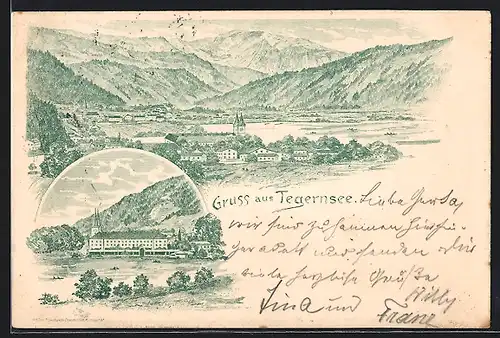 Gruss aus Tegernsee.
Liebe Gerta,
wir sind zusammen hierher
geradelt und senden Dir
viele herzliche Grüße
Lina und Willy
Franz